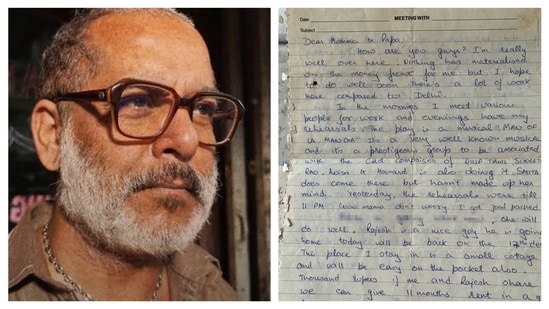 Date
MEETING WITH
Subject
Dear Mamma & Papa,
How are you guys? I'm really
well over here. Nothing has materialised
on the money front for me but I hope
to do well soon. There's a lot of work
here compared to Delhi.
In the mornings I meet various
people for work and evenings have my
rehearsals. The play is a musical "MAN OF
LA MANCHA" its a very well known musical
and its a prestigious group to be associated
with the cast comprises of DILIP TAHIL SUNEETA
RAO. is also doing it SMITA
does come there but hasn't made up her
mind. Yesterday the rehearsals were till
11 P.M. mama don't worry I got food packed
she will
do well. Rajesh is a nice guy he is going
home today will be back on the 17th
The place I stay in is a small cottage
and will be easy on the pocket also.
Thousand Rupees if me and Rajesh share
we can give 11 months rent in a